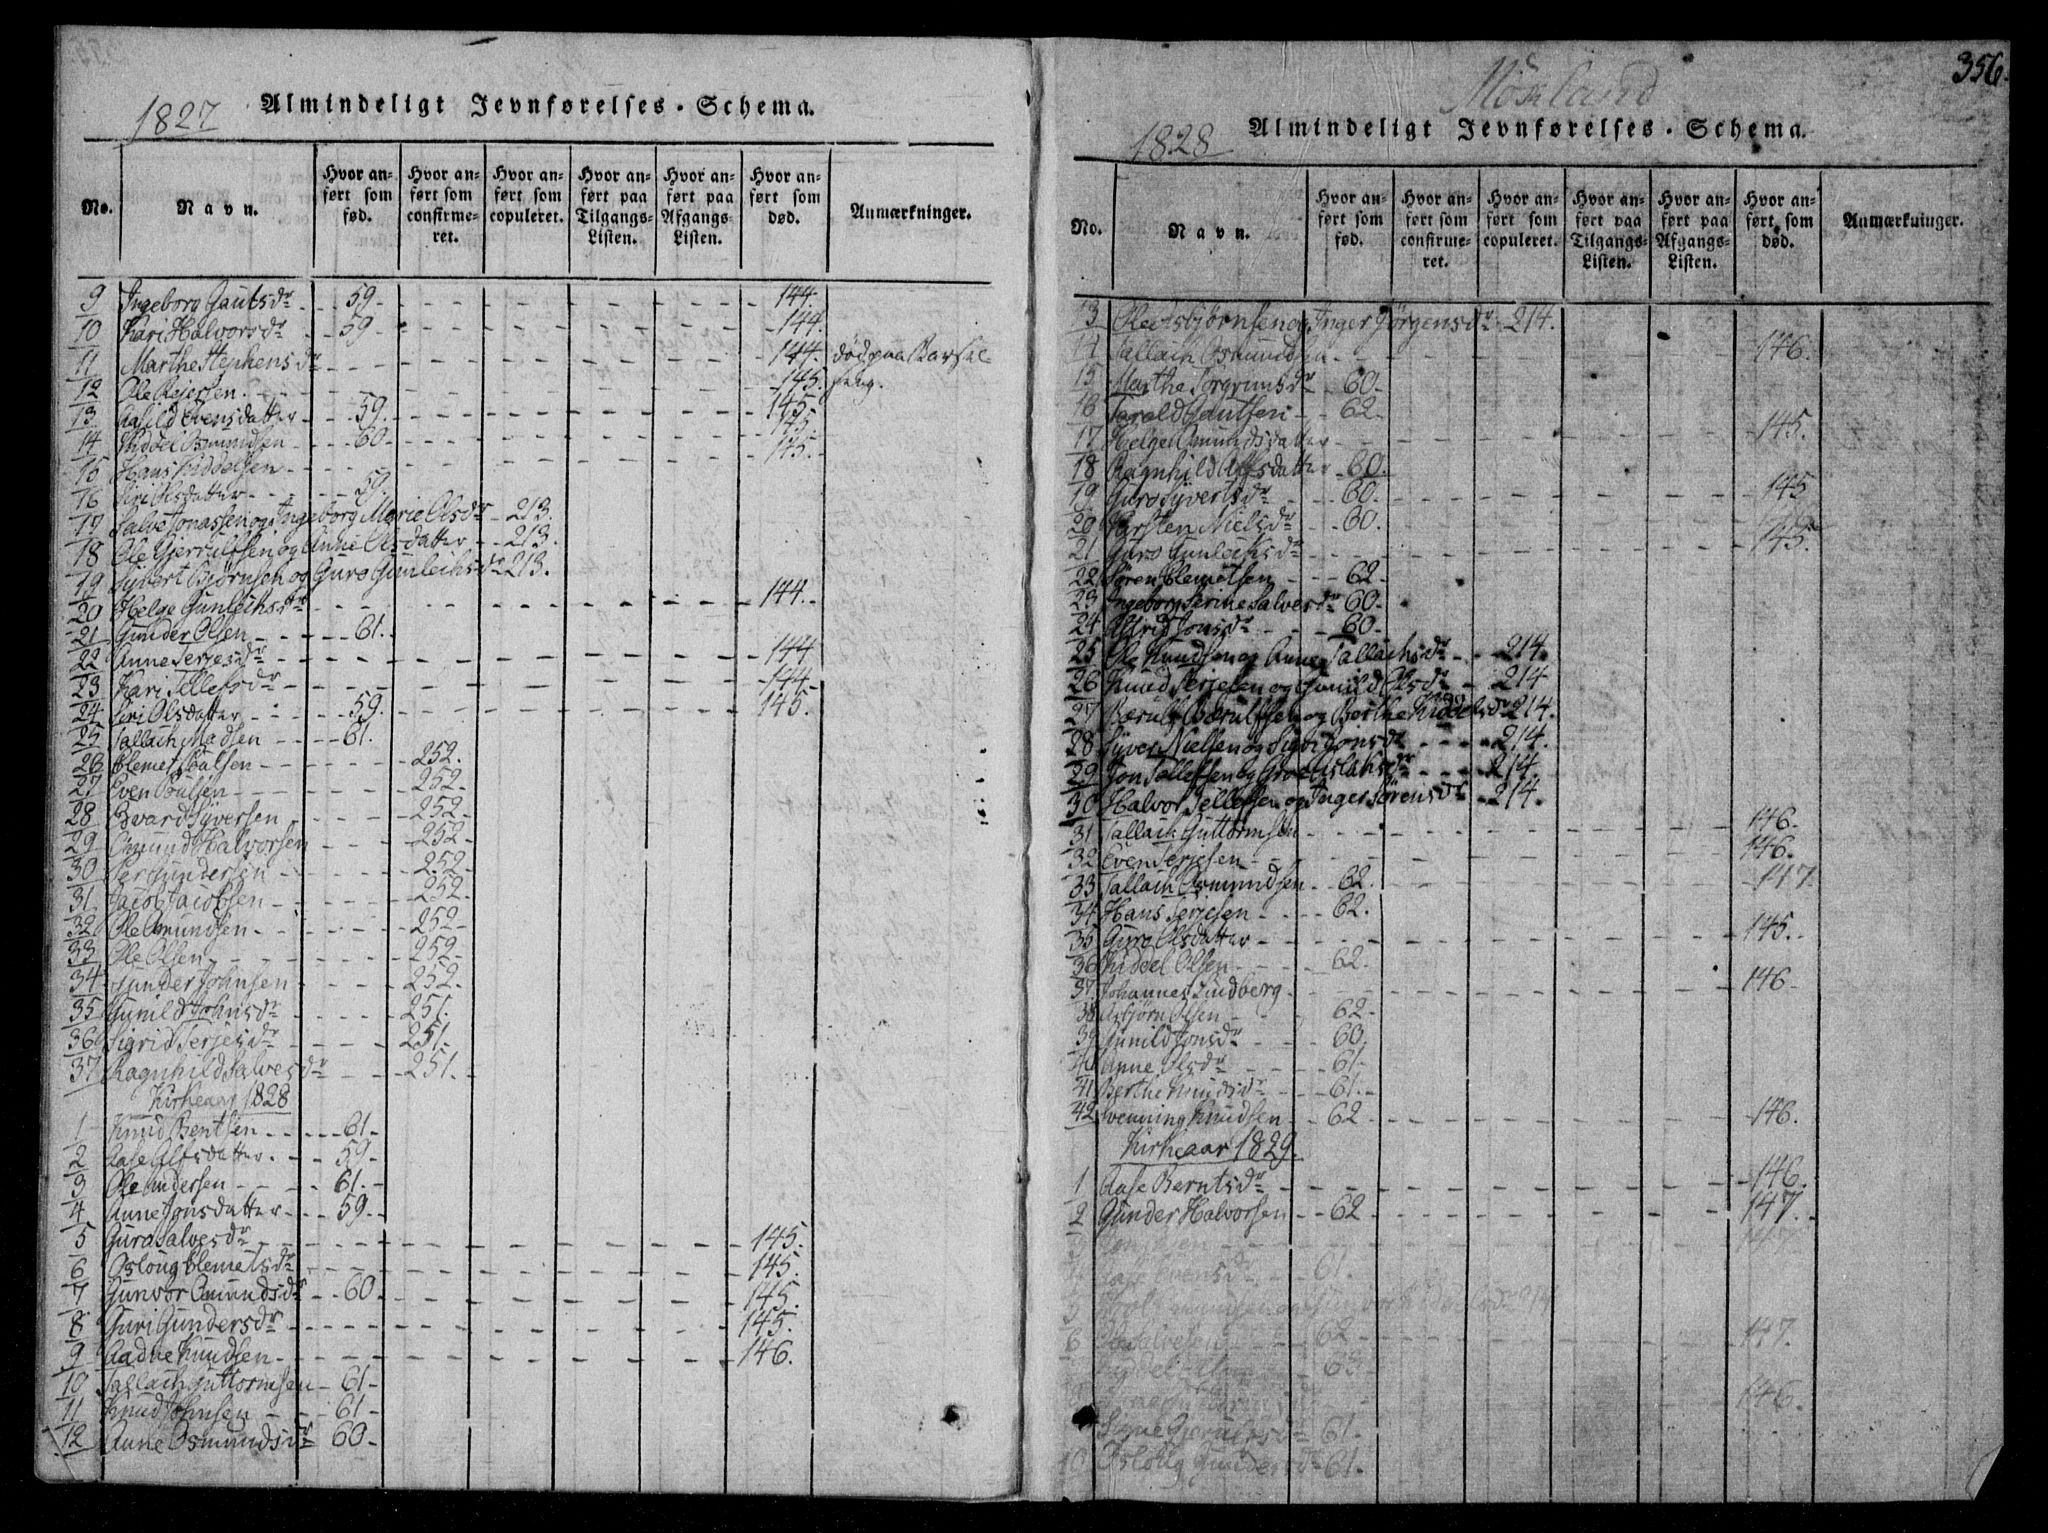 1827
Almindeligt Jevnførelses-Schema.
No.
Navn.
Hvor anført som fød.
Hvor anført som confirmeret.
Hvor anført som copuleret.
Hvor anført paa Tilgangs-Listen.
Hvor anført paa Afgangs-Listen.
Hvor anført som død.
Anmærkninger.
9 Ingeborg Gautsdr 59 144.
10 Kari Halvorsdr 59 144.
11 Marthe Stephensdr 144. død paa Barsel
12 Ole Reiersen 145. seng.
13 Aasild Evensdatter 59. 145.
14 Kiddel Osmundsen 60 145.
15 Hans Kiddelsen 145.
16 Siri Olsdatter 59
17 Salve Jonassen og Ingeborg Marie Olsdr 213.
18 Ole Gjerrulfsen og Anne Olsdatter 213.
19 Syvert Bjørnsen og Guro Gunleichsdr 213.
20 Helge Gunleichsdr 144.
21 Gunder Olsen 61.
22 Anne Terjesdr 144
23 Kari Tellefsdr 144
24 Siri Olsdatter 59. 145.
25 Tallach Madsen 61.
26 Clemet Paalsen 252.
27 Even Poulsen 252.
28 Evard Syversen 252.
29 Omund Halvorsen 252
30 Per Gundersen 252
31 Jacob Jacobsen 252.
32 Ole Omundsen 252
33 Ole Olsen 252
34 Gunder Johnsen 252.
35 Gunild Johnsdr 251.
36 Sigrid Terjesdr 251.
37 Ragnhild Salvesdr 251.
Kirkeaar 1828
1 Knud Bentsen 61
2 Aase Alfsdatter 59
3 Ole Andersen 61.
4 Anne Jonsdatter 59
5 Guro Salvesdr 145.
6 Osloug Clemetsdr 145.
7 Gunvor Omundsdr 60 145.
8 Guri Gundersdr 145.
9 Aadne Knudsen 146.
10 Tallach Guttormsen 61
11 Knud Johnsen 61
12 Anne Osmundsdr 60
356.
1828
Almindeligt Jevnførelses-Schema.
No.
Navn.
Hvor anført som fød.
Hvor anført som confirmeret.
Hvor anført som copuleret.
Hvor anført paa Tilgangs-Listen.
Hvor anført paa Afgangs-Listen.
Hvor anført som død.
Anmærkninger.
13 Ole Asbjørnsen og Inger Jørgensdr 214.
14 Tallach Osmundsen 146.
15 Marthe Torgrimsdr 60
16 Torald Gautsen 62
17 Helge Omundsdatter 145.
18 Ragnhild Alfsdatter 60.
19 Guro Syvertsdr 60. 145
20 Kirsten Nielsdr 60.
21 Guro Gunleichsdr 145.
22 Søren Clemetsen 62
23 Ingeborg Serine Salvesdr 60
24 Astrid Jonsdr 60
25 Ole Knudsen og Anne Tallachsdr 214.
26 Knud Terjesen og Gunild Olsdr 214
27 Bærulf Bærulfsen og Berthe Kiddelsdr 214.
28 Syver Nielsen og Sigri Jonsdr 214.
29 Jon Tellefsen og Groe Aslaksdr 214
30 Halvor Tellefsen og Inger Sørensdr 214.
31 Tallach Guttormsen 146.
32 Even Terjesen 146.
33 Tallach Osmundsen 62. 147.
34 Hans Terjesen 62.
35 Guro Olsdatter 145.
36 Kiddel Olsen 62.
37 Johannes Lindberg 146
38 Asbjørn Olsen 62
39 Gunild Jonsdr 60.
40 Anne Olsdr 61
41 Berthe Knudsdr 61.
42 Svenning Knudsen 62 146.
Kirkeaar 1829.
1 Aase Berntsdr 146.
2 Gunder Halvorsen 62 147.
3
4 Aase Evensdr 61.
5 214
6 62 147.
63
146.
61.
10 Osloug Gundersdr 61.